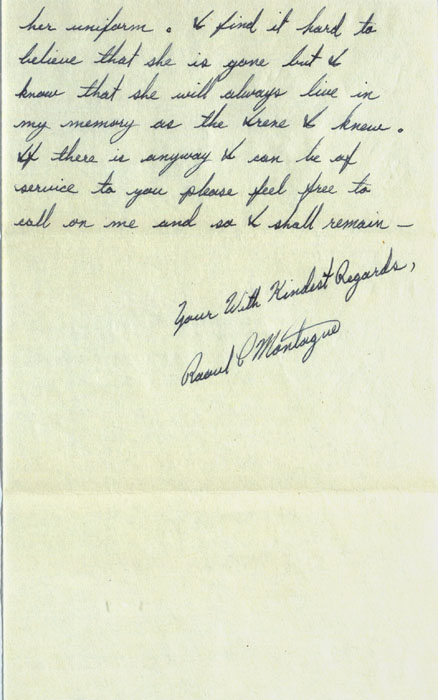 her uniform. I find it hard to
believe that she is gone but I
know that she will always live in
my memory as the Irene I knew.
If there is anyway I can be of
service to you please feel free to
call on me and so I shall remain —
Your With Kindest Regards,
Raoul C Montague